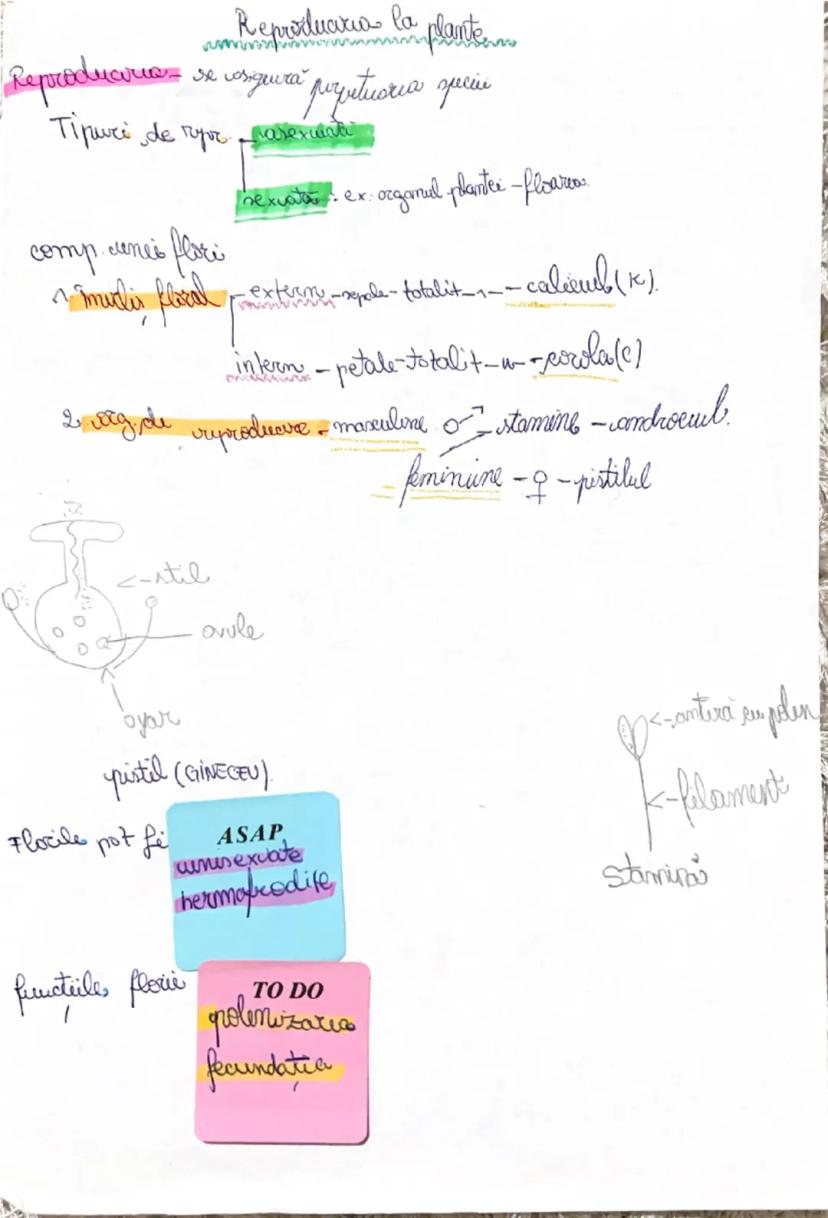 Reproducerea la plante
Reproducerea - se asigură perpetuarea speciei
Tipuri de repr. asexuată
sexuată: ex: organul plantei - floarea.
comp. unei flori
1. învelis, floral extern - sepale - totalit -"- - caliciul (K).
intern - petale - totalit -"- - corola (C)
2. org. de reproducere - masculine ♂ stamine - androceul.
feminine - ♀ - pistilul
<- stil
ovule
ovar
<- anteră cu polen
<- filament
stamină
pistil (GINECEU).
Florile pot fi
ASAP
unisexuate
hermafrodite
funcțiile florii
TO DO
polenizarea
fecundația